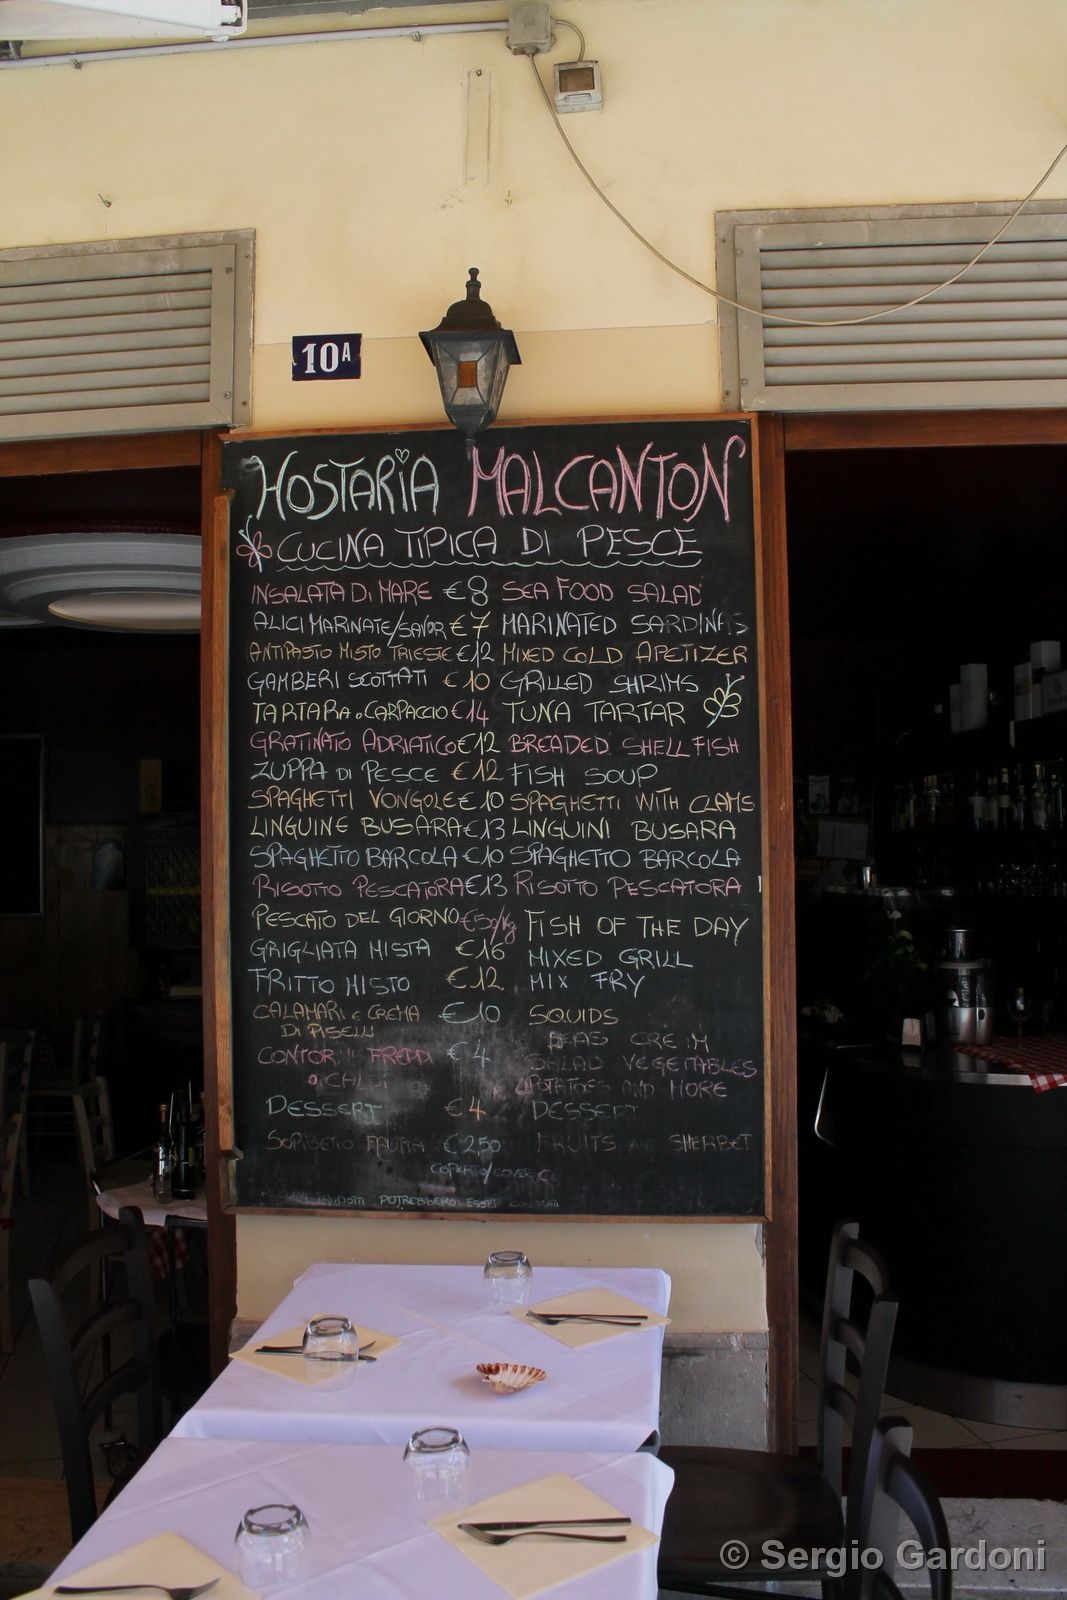 10A
HOSTARIA MALCANTON
CUCINA TIPICA DI PESCE
INSALATA DI MARE €8 SEA FOOD SALAD
ALICI MARINATE/SAVOR €7 MARINATED
ANTIPASTO MISTO TRIESTE €12 MIXED COLD APETIZER
GAMBERI SCOTTATI €10 GRILLED SHRIMS
TARTARA o CARPACCIO €14 TUNA TARTAR
GRATINATO ADRIATICO €12 BREADED SHELL FISH
ZUPPA DI PESCE €12 FISH SOUP
SPAGHETTI VONGOLE €10 SPAGHETTI WITH CLAMS
LINGUINE BUSARA €13 LINGUINI BUSARA
SPAGHETTO BARCOLA €10 SPAGHETTO BARCOLA
RISOTTO PESCATORA €13 RISOTTO PESCATORA
PESCATO DEL GIORNO €50/Kg FISH OF THE DAY
GRIGLIATA MISTA €16 MIXED GRILL
FRITTO MISTO €12 MIX FRY
CALAMARI e CREMA €10 SQUIDS
DI PISELLI PEAS
FREDDI €4 SALAD VEGETABLES
o CALDI POTATOES AND MORE
DESSERT €4 DESSERT
SORBETTO FRUTTA €2,50 FRUITS SHERBET
COPERTO/COVER
POTREBBERO ESSERE
© Sergio Gardoni